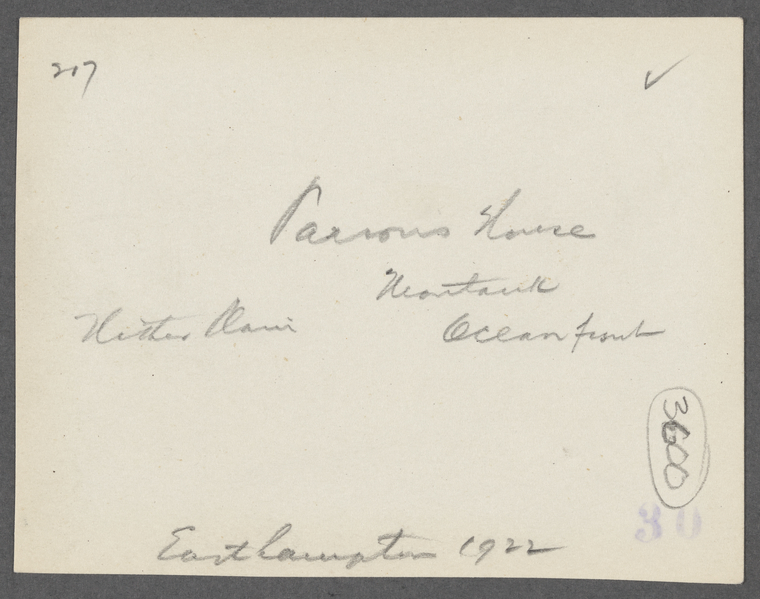 207
Parsons House
Montauk
Hither Plain
Ocean front
3600
30
Easthampton 1922